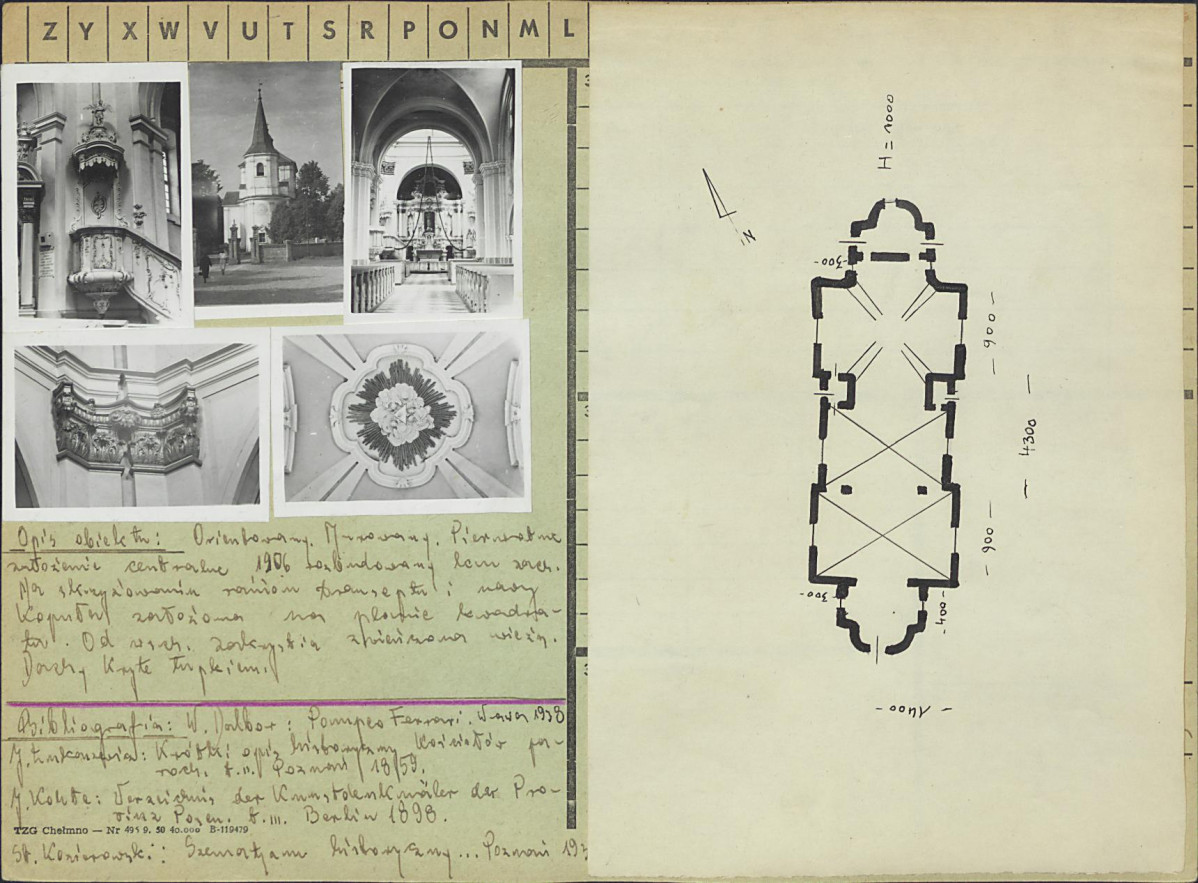 Z Y X W V U T S R P O N M L
Opis obiektu: Orientowany. Murowany. Pierwotne
założenie centralne 1906 rozbudowany ku zach.
Na skrzyżowaniu ramion transeptu i nawy
kopuła założona na planie kwadra-
tu. Od wsch. zakrystia zwieńczona wieżą.
Dachy kryte
Bibliografia: W. Dalbor: Pompeo Ferrari. W-awa 1938
J. Łukaszewicz: Krótki opis historyczny kościołów pa-
roch. t. II. Poznań 1859.
J. Kohte: Verzeichnis der Kunstdenkmäler der Pro-
vinz Posen. t. III. Berlin 1898.
TZG Chełmno — Nr 495 9. 50 40.000 B-119479
St. Kozierowski: Szematyzm historyczny... Poznań 19
H = 1000
N
-300-
- 900 -
- 4300 -
- 900 -
-300-
-400-
- 1400 -